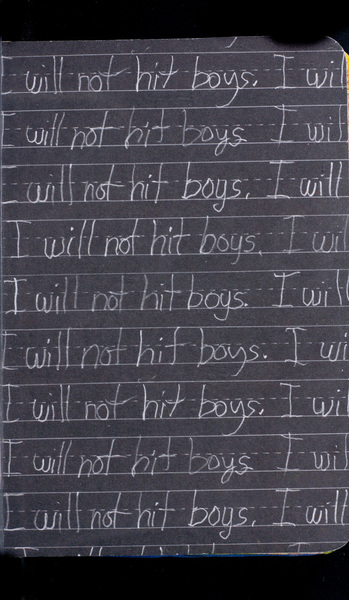 I will not hit boys. I wil
I will not hit boys I wil
I will not hit boys. I will
I will not hit boys. I wil
I will not hit boys. I wil
I will not hit boys. I wi
I will not hit boys. I wi
I will not hit boys I wil
I will not hit boys. I will